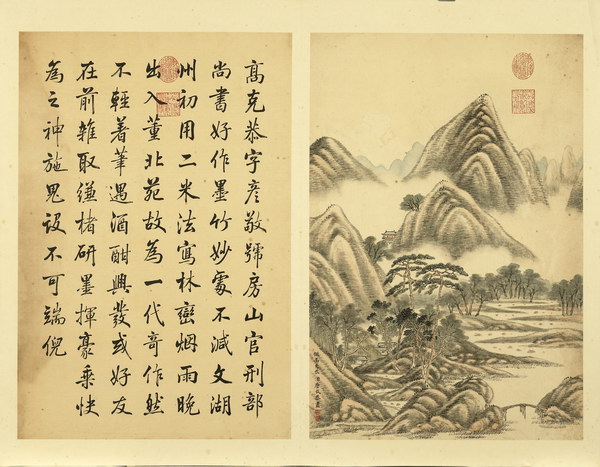 髙克恭字彥敬號房山官刑部
尚書好作墨竹妙處不減文湖
州初用二米法寫林巒烟雨晚
出入董北苑故為一代奇作然
不輕著筆遇酒酣興發或好友
在前雜取縑楮研墨揮豪乘快
為之神施鬼設不可端倪